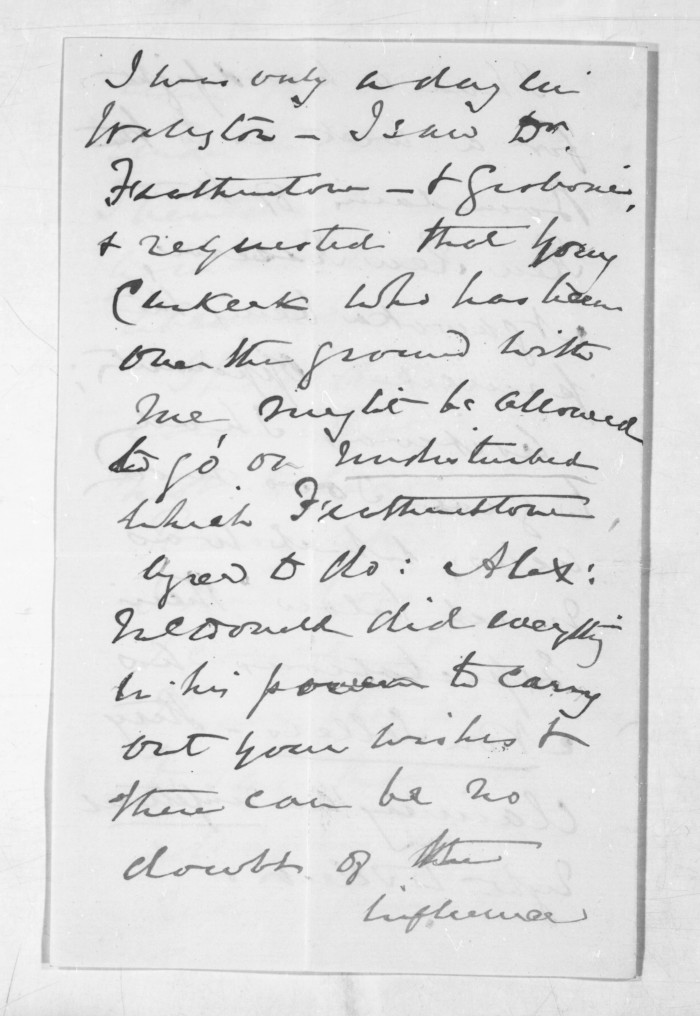 I was only a day in
Wahgton – I saw Dr.
Featherstone – & Gisborne,
& requested that young
Carkeek who has been
over the ground with
me might be allowed
to go on undisturbed
which Featherstone
agreed to do: Alex:
McDonald did everything
in his power to carry
out your wishes &
there can be no
doubt of the
influence